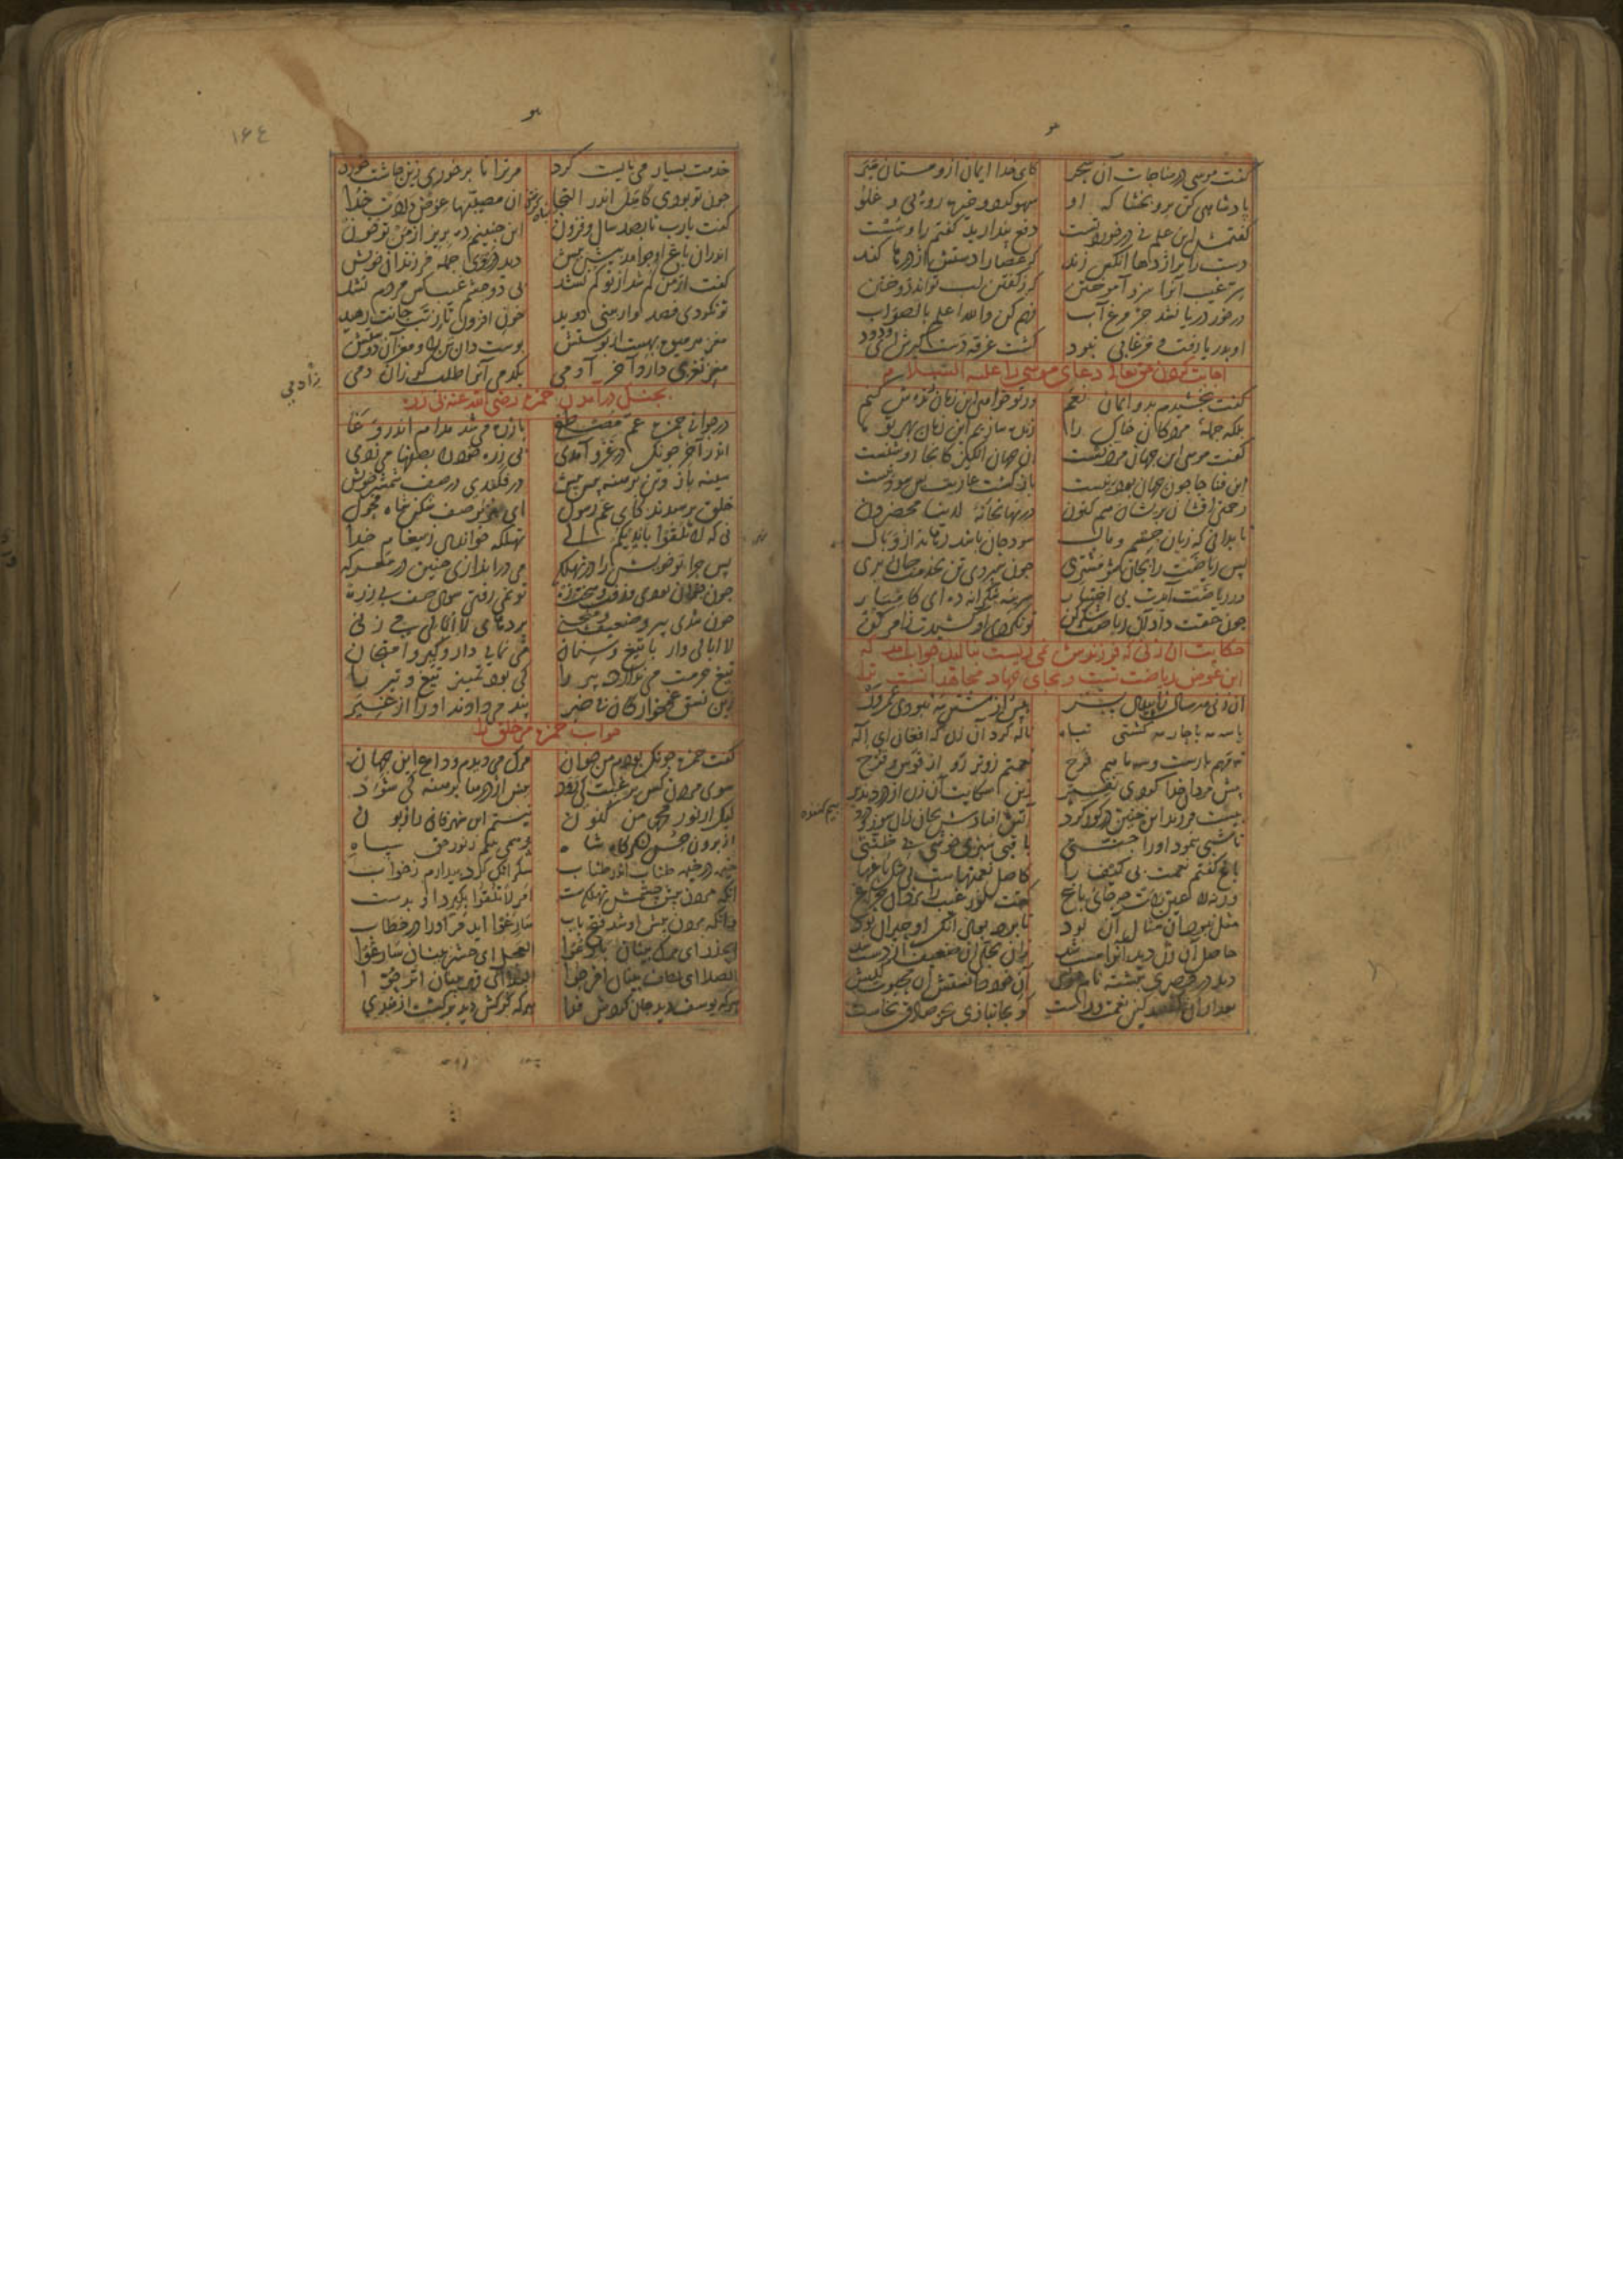 هو
گفت موسی در مناجات آن سحر کای خدا ایمان ازو مستان مبر
پادشاهی کن برو بخشا که او سهو کرد و خیره رویی و غلو
گفتمش این علم نی درخورد تست دفع پندارید گفتم را و سست
دست را بر اژدها آنکس زند که عصا را دستش اژدرها کند
سر غیب آنرا سزد آموختن که ز گفتن لب تواند دوختن
درخور دریا نشد جز مرغ آب فهم کن والله اعلم بالصواب
او بدریا رفت و مرغابی نبود گشت غرقه دست گیرش ای ودود
اجابت کردن حق تعالی دعای موسی را علیه السلام
گفت بخشیدم بدو ایمان نعم ور تو خواهی این زمان زنده‌ش کنم
بلکه جمله مردگان خاک را زنده سازیم این زمان بهر تو را
گفت موسی این جهان مردنست آن جهان انگیز کانجا روشنست
این فنا جا چون جهان بود نیست بازگشت عاریت بس سود نیست
رحمتی افشان بر ایشان هم کنون در نهانخانه لدینا محضرون
تا بدانی که زیان جسم و مال سود جان باشد رهاند از وبال
پس ریاضت را بجان شو مشتری چون سپردی تن بخدمت جان بری
ور ریاضت آیدت بی اختیار سر بنه شکرانه ده ای کامیار
چون حقت داد آن ریاضت شکر کن تو نکردی او کشیدت ز امر کن
حکایت آن زنی که فرزندش نمی زیست بنالید جواب آمد که
این عوض ریاضت تست و بجای جهاد مجاهدانست ترا
آن زنی هر سال زاییدی پسر بیش از شش مه نبودی عمرور
یا سه مه یا چار مه گشتی تباه ناله کرد آن زن که افغان ای اله
نه مهم بارست و سه ماهم فرح نعمتم زوتر رو از قوس قزح
پیش مردان خدا کردی نفیر زین شکایت آن زن از درد نذیر
بیست فرزند این چنین در گور کرد آتش افتادش بجان زان سوز و درد
تا شبی بنمود او را جنتی باقیی سبزی خوشی بی ظنتی
باغ گفتم نعمت بی کیف را کاصل نعمتهاست بی شک باغها
ورنه لا عین رات چه جای باغ گفت نور غیب را یزدان چراغ
مثل نبود آن مثال آن بود تا برد بوی آنک او حیران بود
حاصل آن زن دید آنرا مست شد زان تجلی آن ضعیف از دست شد
دید در قصری نبشته نام خویش آن خود دانستش آن محبوب کیش
بعد از آن گفتند کین نعمت وراست کو بجانبازی بجز صادق نخاست
بیم کننده
هو
۱۶۴
خدمت بسیار می بایست کرد مر ترا تا بر خوری زین چاشت خورد
چون تو بودی کاهل اندر التجا آن مصیبتها عوض دادت خدا
گفت یارب تا بصد سال و فزون این چنینم ده بریز از من تو خون
اندر آن باغ او چو آمد پیش پیش دید در وی جمله فرزندان خویش
گفت از من گم شد از تو گم نشد بی دو چشم غیب کس مردم نشد
تو نکردی فصد و از بینی دوید خون افزون تا ز تب جانت رهید
مغز هر میوه بهست از پوستش پوست دان تن را و مغز آن دوستش
مغز نغزی دارد آخر آدمی یکدمی آنرا طلب گر زان دمی
ز آدمی
بجنگ در آمدن حمزه رضی الله عنه بی زره
در جوانی حمزه عم مصطفی با زره می شد مدام اندر وغا
اندر آخر چونک در غزو آمدی بی زره خود را بصفها می زدی
سینه باز و تن برهنه پیش پیش در فکندی در صف شمشیر خویش
خلق پرسیدند کای عم رسول ای هژبر صف شکن شاه فحول
نی که لا تلقوا بایدیکم الی تهلکه خواندی ز پیغام خدا
پس چرا تو خویش را در تهلکه می دراندازی چنین در معرکه
چون جوان بودی و زفت و سخت زه تو نمی رفتی سوی صف بی زره
چون شدی پیر و ضعیف و منحنی پرده‌های لاابالی می زنی
لاابالی وار با تیغ و سنان می نمایی دار و گیر و امتحان
تیغ حرمت می ندارد پیر را کی بود تمییز تیغ و تیر را
زین نسق غمخوارگان ناخبر پند می دادند او را از غیر
جواب حمزه مر خلق را
گفت حمزه چونک بودم من جوان مرگ می دیدم وداع این جهان
سوی مردن کس برغبت کی رود پیش اژدرها برهنه کی شود
لیک از نور محمد من کنون نیستم این شهر فانی را زبون
از برون حس لشکرگاه شاه پر همی بینم ز نور حق سپاه
خیمه در خیمه طناب اندر طناب شکر آنک کرد بیدارم ز خواب
آنک مردن پیش چشمش تهلکه‌ست امر لا تلقوا بگیرد او بدست
وانک مردن پیش او شد فتح باب سارعوا آید مر او را در خطاب
الحذر ای مرگ بینان بارعوا العجل ای حشر بینان سارعوا
الصلا ای لطف بینان افرحوا البلا ای قهر بینان اترحوا
هر که یوسف دید جان کردش فدا هر که گرگش دید برگشت از هدی